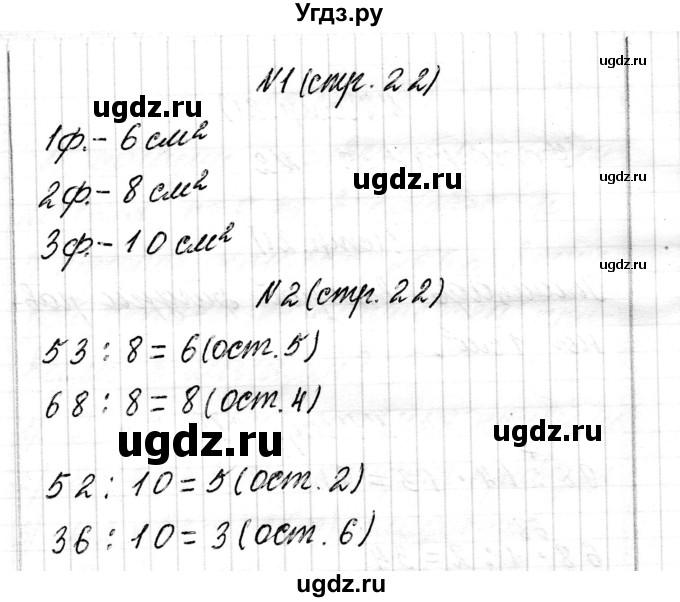 Угдз.ру
ugdz.ru
№1 (стр. 22)
ugdz.ru
1ф.- 6 см²
ugdz.ru
2ф.- 8 см²
3ф.- 10 см²
ugdz.ru
№2 (стр. 22)
53 : 8 = 6 (ост. 5)
68 : 8 = 8 (ост. 4)
ugdz.ru
ugdz.ru
52 : 10 = 5 (ост. 2)
36 : 10 = 3 (ост. 6)
ugdz.ru
ugdz.ru